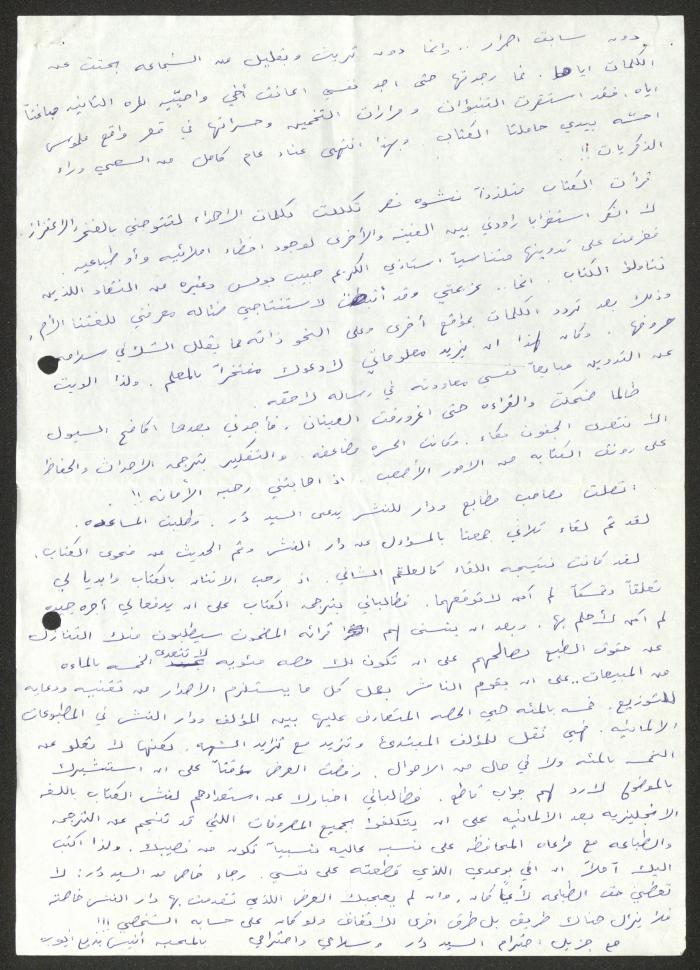 دون سابق اصرار .. وانما دون تريث وبقليل من الشجاعه بحثت عن
الكلمات اياها . فما وجدتها حتى اجد نفسي اعانق أخي واحيّيه للمرة الثانية
اياه . فقد استقرت التنبؤات ومرارات التخمين وحسراتها في قعر واقع ملموس
احسّه بيدي حاملتا الكتاب . وبهذا انتهى عناء عام كامل من السعي وراء
الذكريات !!
قرأت الكتاب متلذذاً بنشوه نصر تكللت بكلمات الاهداء لتتوجني بالفخر والاعتزاز .
لك الفكر استغرابا راودني بين الفينه والأخرى لوجود اخطاء املائيه و/أو طباعيه
فعزمت على تدوينها متناسياً استاذي الكريم حبيب بولس وغيره من النقاد اللذين
تناولوا الكتاب . انما .. عزيمتي وقد لاستنتاجي ضئاله معرفتي للغتنا الأم ,
وذلك بعد تردد الكلمات بمواقع أخرى وعلى النحو ذاته مما يقلل الشك في سلامه
حروفها . وكان لهذا ان يزيد معلوماتي لأدعوك مفتخراً بالمعلم . ولذا ارتأيت
عن التدوين مبايعاً نفسي معاودته في رساله لاحقه .
طالما ضحكت والقراءه حتى اغرورقت العينان , فأجدني بعدها اكافح السيول
الا تتعدى الجفون بكاء . وكانت الحسره مضاعفه . والتفكير بترجمه الاحداث والحفاظ
على رونق الكتابه من الامور الأصعب . اذ اصابتني رهبه الأمانه !!
اتصلت بصاحب مطابع ودار للنشر يدعى السيد دُر . وطلبت المساعده .
لقد تم لقاء ثلاثي جمعنا بالمسؤول عن دار النشر وتم الحديث عن فحوى الكتاب .
لقد كانت نتيجه اللقاء كالعلقم الشافي . اذ رحب الاثنان بالكتاب وابديا لي
تعلقاً وتمسكاً لم اكن لاتوقعهما . فطالباني بترجمه الكتاب على ان يدفعا لي أجره جيده
لم اكن لأحلم بها . وبعد ان يتسنى لهم قرائه المضمون سيطلبون منك التنازل
عن حقوق الطبع لصالحهم على ان تكون لك حصه مئويه لا تتعدى الخمسه بالماءه
من المبيعات .. على ان يقوم الناشر بعمل كل ما يستلزم الاصدار من تقنيه ودعايه
للتوزيع . خمسه بالمئه هي الحصه المتعارف عليها بين المؤلف ودار النشر في المطبوعات
الالمانيه . فهي تقل للمؤلف المبتدئ وتزيد مع تزايد الشهره . لكنها لا تعلو عن
الخمسه بالمئه ولا في حال من الاحوال . رفضت العرض مؤقتاً على ان استشيرك
بالموضوع لأرد لهم جواب قاطع . فطالباني اخبارك عن استعدادهم لنشر الكتاب باللغه
الانجليزيه بعد الالمانيه على ان يتكلفوا بجميع المصروفات اللتي قد تنجم عن الترجمه
والطباعه مع مراعاه المحافظه على نسبه عاليه نسبياً تكون من نصيبك . ولذا اكتب
اليك آملاً ان افي بوعدي اللذي قطعته على نفسي . رجاء خاص من السيد دُر : لا
تعطي حق الطباعه لأياً كان . وان لم يعجبك العرض اللذي تقدمت بها دار النشر خاصته
فلا يزال هناك طريق بل طرق اخرى للاتفاق ولو كان على حسابه الشخصي !!!
مع جزيل احترام السيد دُر وسلامي واحترامي بالمحبه أنيس بديع ايوب